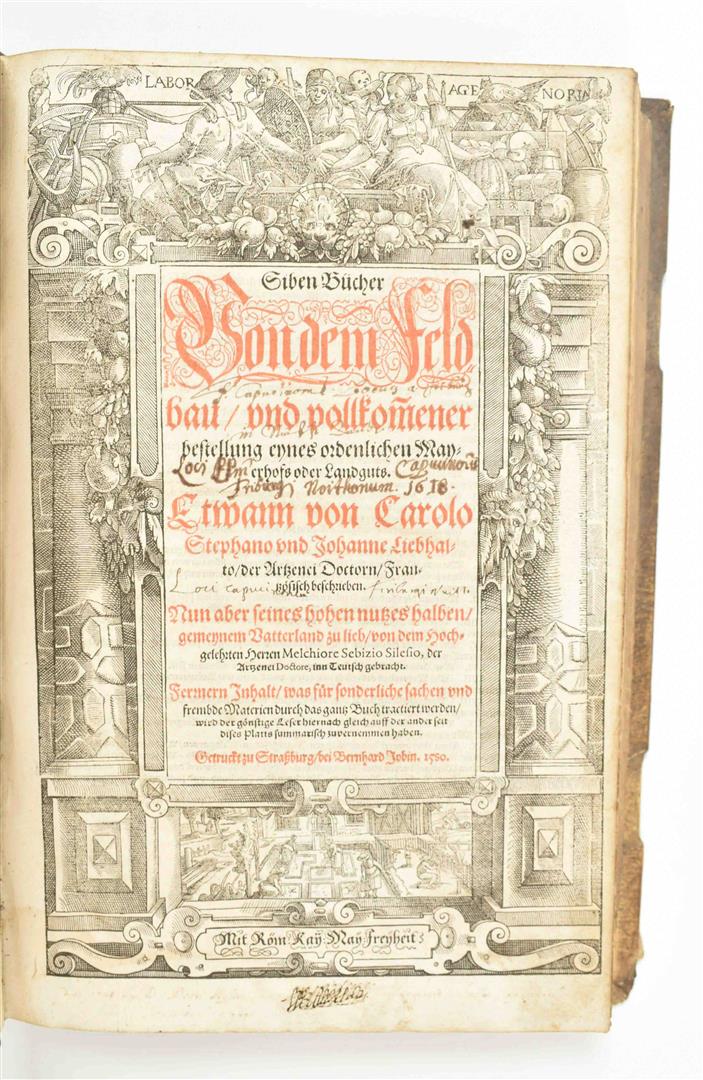 LABOR AGENORIA
Siben Bücher
Von dem Feld
bau / vnd vollkom̃ener
bestellung eynes ordenlichen May-
Loci erhofs oder Landguts.
1618.
Etwann von Carolo
Stephano vnd Johanne Liebhal-
to / der Artzenei Doctorn / Fran-
tzösisch beschrieben.
Loci
Nun aber seines hohen nutzes halben /
gemeynem Vatterland zu lieb / von dem Hoch-
gelehrten Herren Melchiore Sebizio Silesio, der
Artzenei Doctore, inn Teutsch gebracht.
Fermern Inhalt / was für sonderliche sachen vnd
frembde Materien durch das gantz Buch tractiert werden /
wird der gönstige Leser hiernach gleich auff der ander seit
dises Platts summarisch zuvernemmen haben.
Getruckt zu Straßburg / bei Bernhard Jobin. 1580.
Mit Röm: Kaÿ: May: Freyheit: